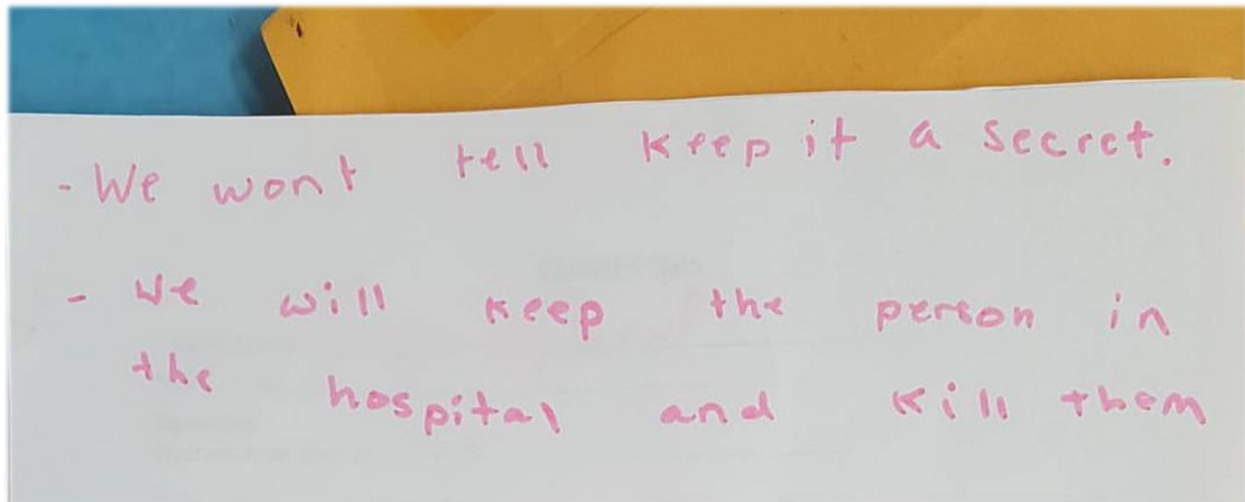 - We wont tell keep it a secret.
- We will keep the person in
the hospital and kill them